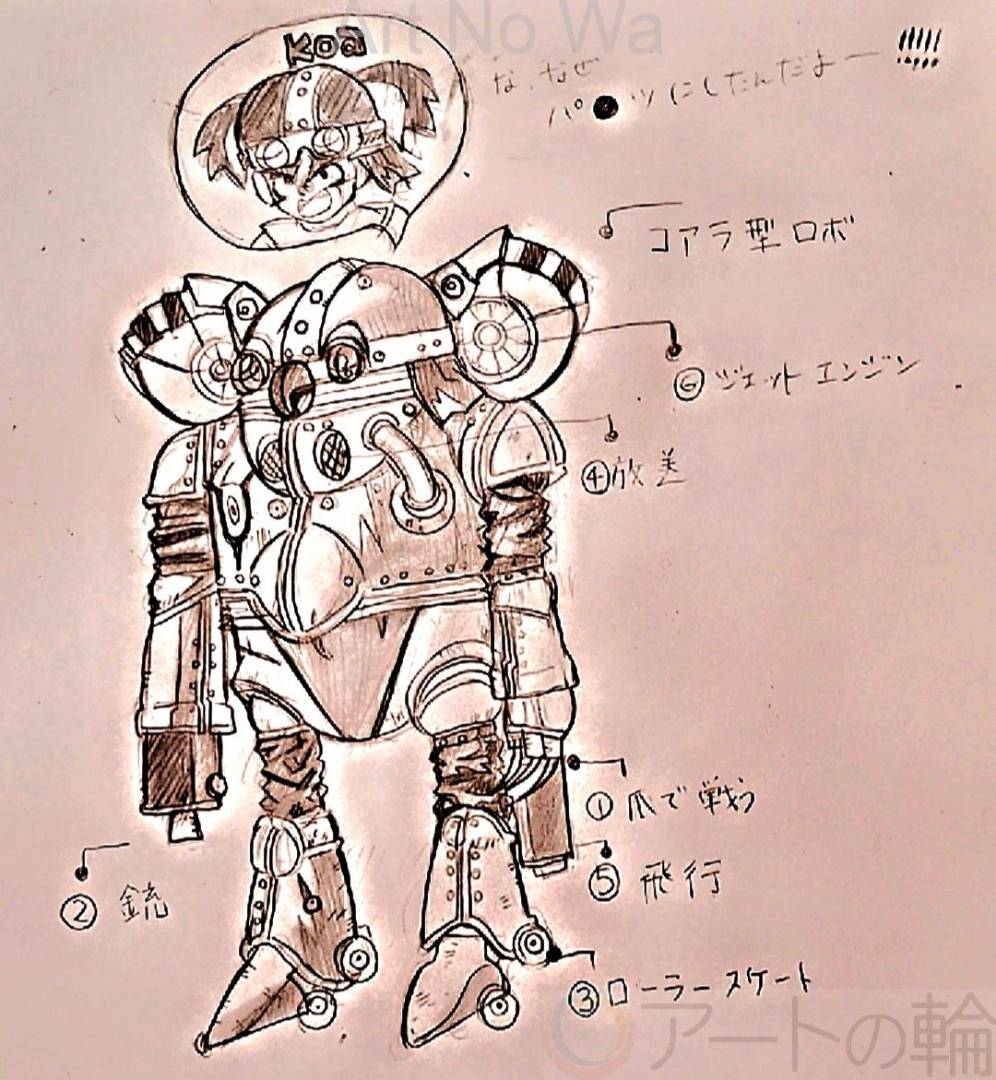 Art No Wa
Koa
な、なぜ
パ●ツにしたんだよー!!!!!
コアラ型ロボ
⑥ジェットエンジン
④放差
①爪で戦う
⑤飛行
②銃
③ローラースケート
アートの輪